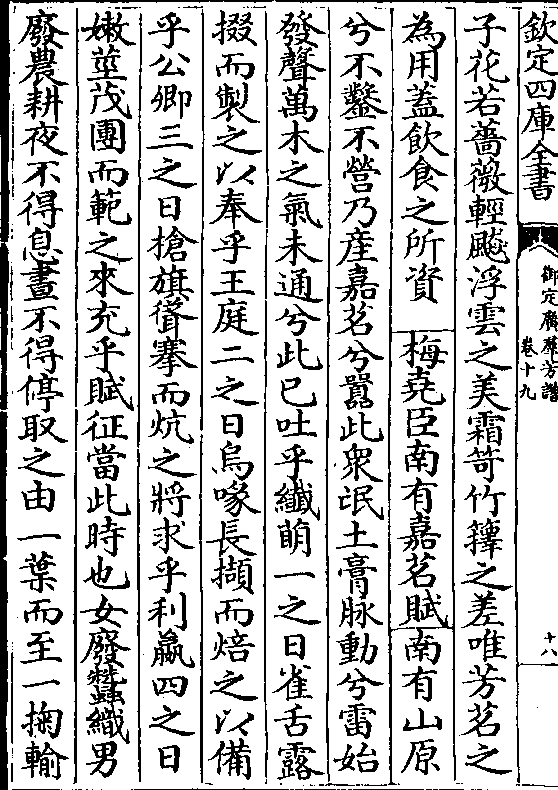 欽定四庫全書
御定廣羣芳譜
卷十九
十八
子花若薔薇輕飈浮雲之美霜笴竹籜之差唯芳茗之
為用蓋飲食之所資 梅堯臣南有嘉茗賦南有山原
兮不鑿不營乃產嘉茗兮嚻此衆氓土膏脉動兮雷始
發聲萬木之氣未通兮此已吐乎纎萌一之日雀舌露
掇而製之以奉乎王庭二之日鳥喙長擷而焙之以備
乎公卿三之日槍旗聳搴而炕之將求乎利贏四之日
嫩莖茂團而範之來充乎賦征當此時也女廢蠶織男
廢農耕夜不得息晝不得停取之由一葉而至一掬輸